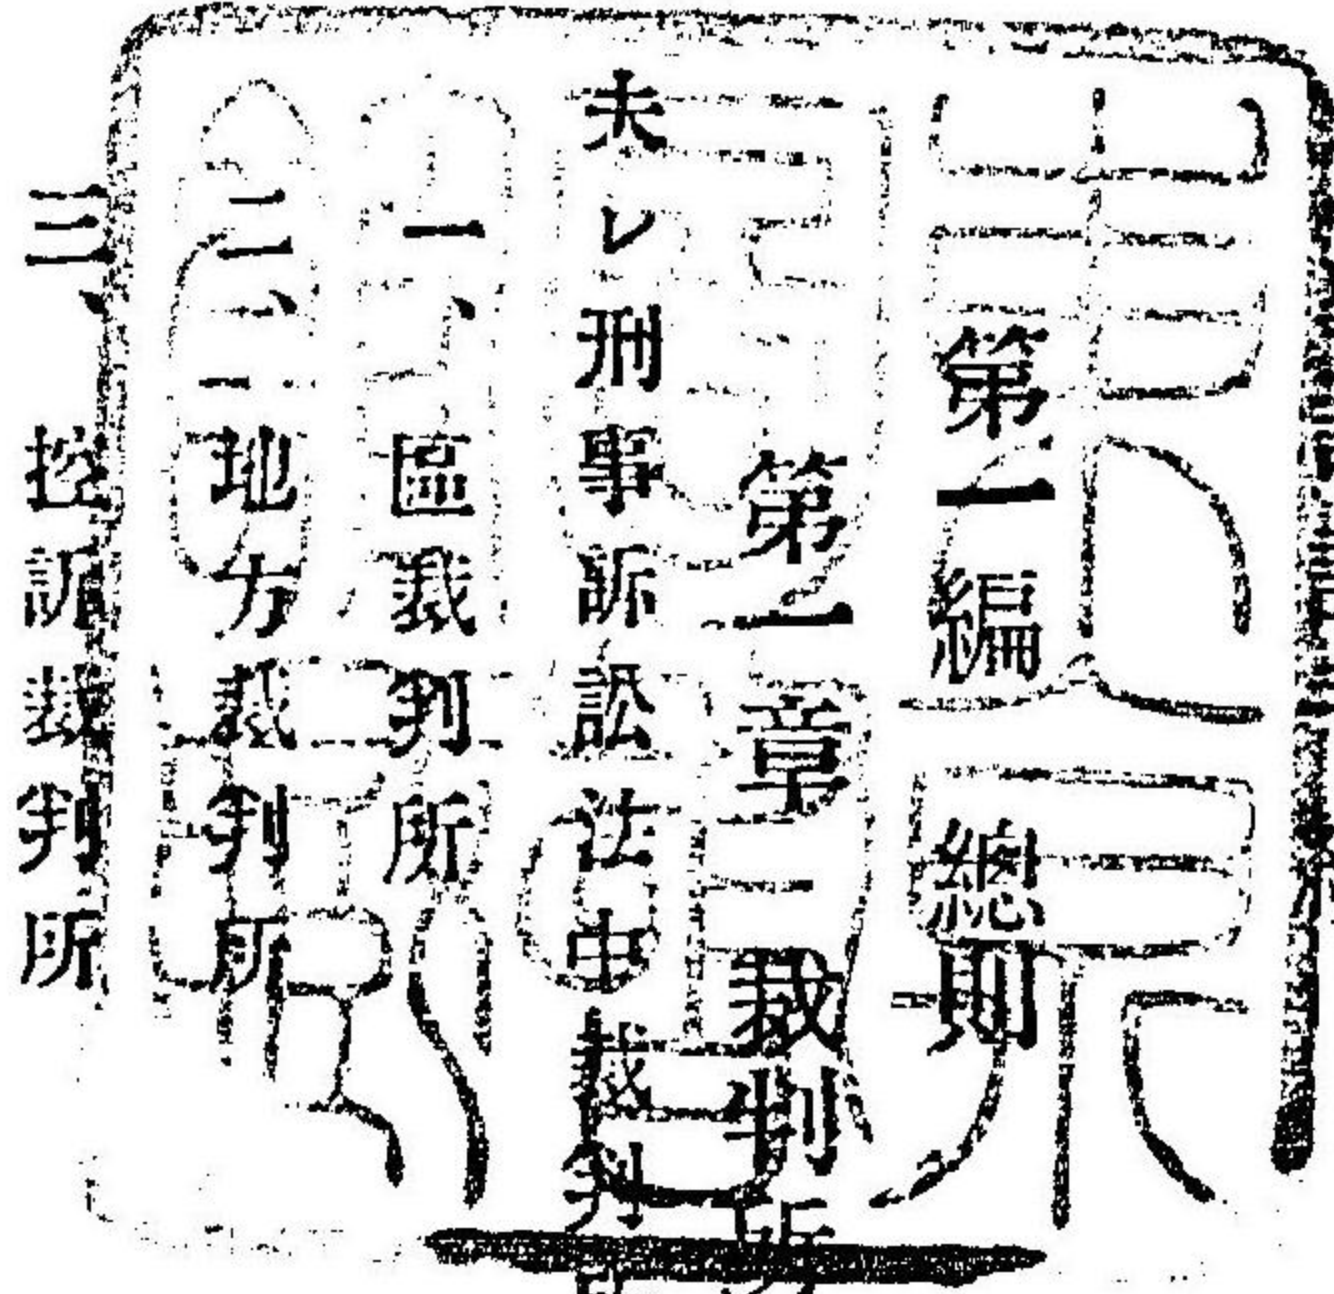 第一編 總則
第一章 裁判所
夫レ刑事訴訟法中裁判所
一、區裁判所
二、地方裁判所
三、控訴裁判所